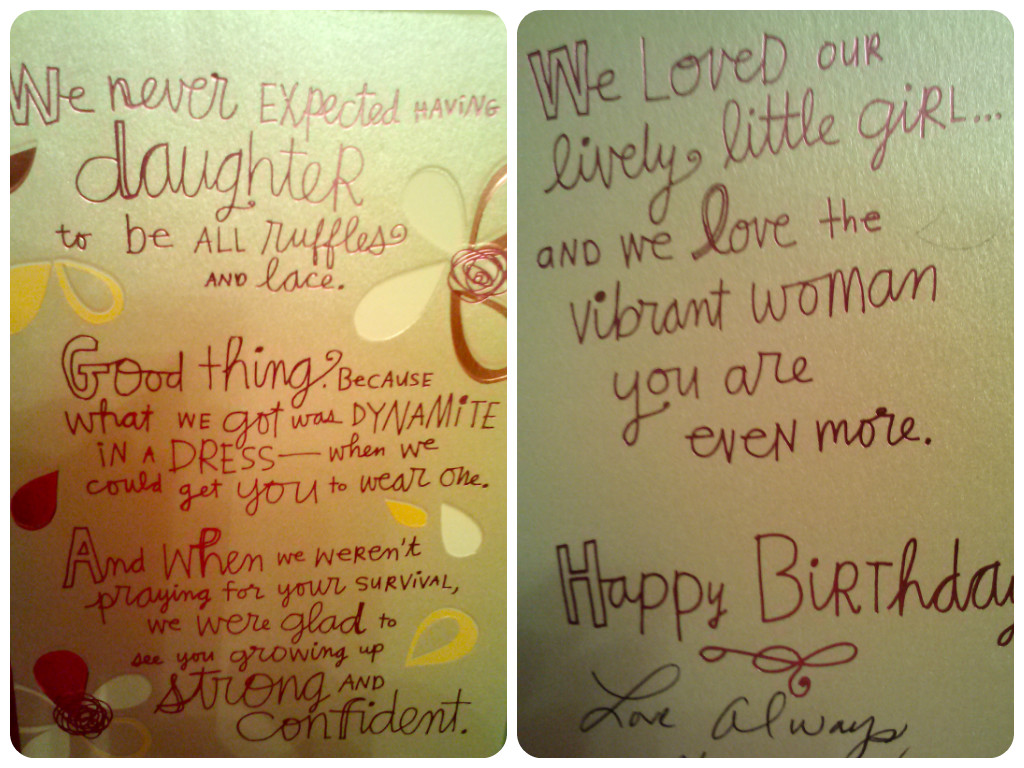 We never EXPected HAViNG
daughteR
to be ALL Ruffles
AND lace.
Good thing. BECAUSE
what WE got was DYNAMiTE
iN A DRESS — when we
could get you to wear one.
And When we weren't
praying for your SURViVAL,
we were glad to
see you growing up
strong AND
confident.
We LoveD OUR
lively, little giRL...
AND we love the
vibrant woMAN
you are
eveN more.
Happy BiRThday
Love Always,